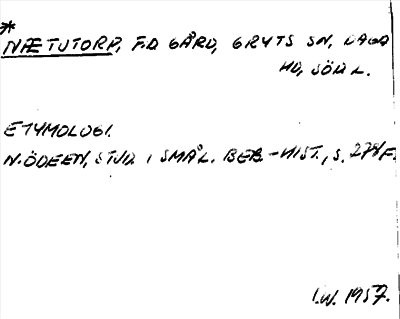 *
NÆTUTORP, F.D GÅRD, GRYTS SN, DAGA
HD, SÖDL.
ETYMOLOGI.
N. ÖDEEN, STUD. I SMÅL. BEB.-HIST., S. 278F.
I.W. 1957.